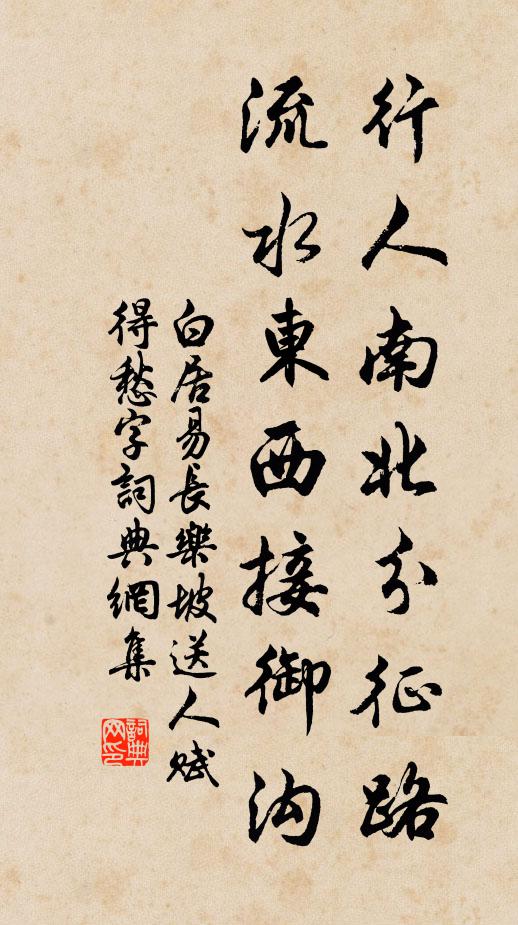 行人南北分征路
流水東西接御沟
白居易長樂坡送人賦
得愁字詞典網集
詞典网印